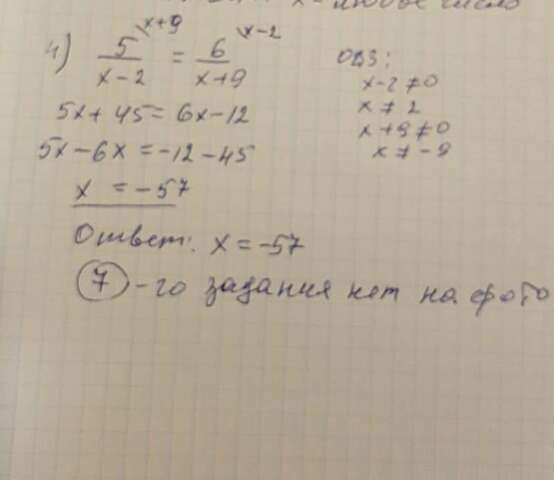 x - любое число
4) 5/(x-2) \x+9 = 6/(x+9) \x-2
ОДЗ:
x-2≠0
5x+45=6x-12
x≠2
x+9≠0
5x-6x=-12-45
x≠-9
x = -57
Ответ: x=-57
7-го задания нет на фото